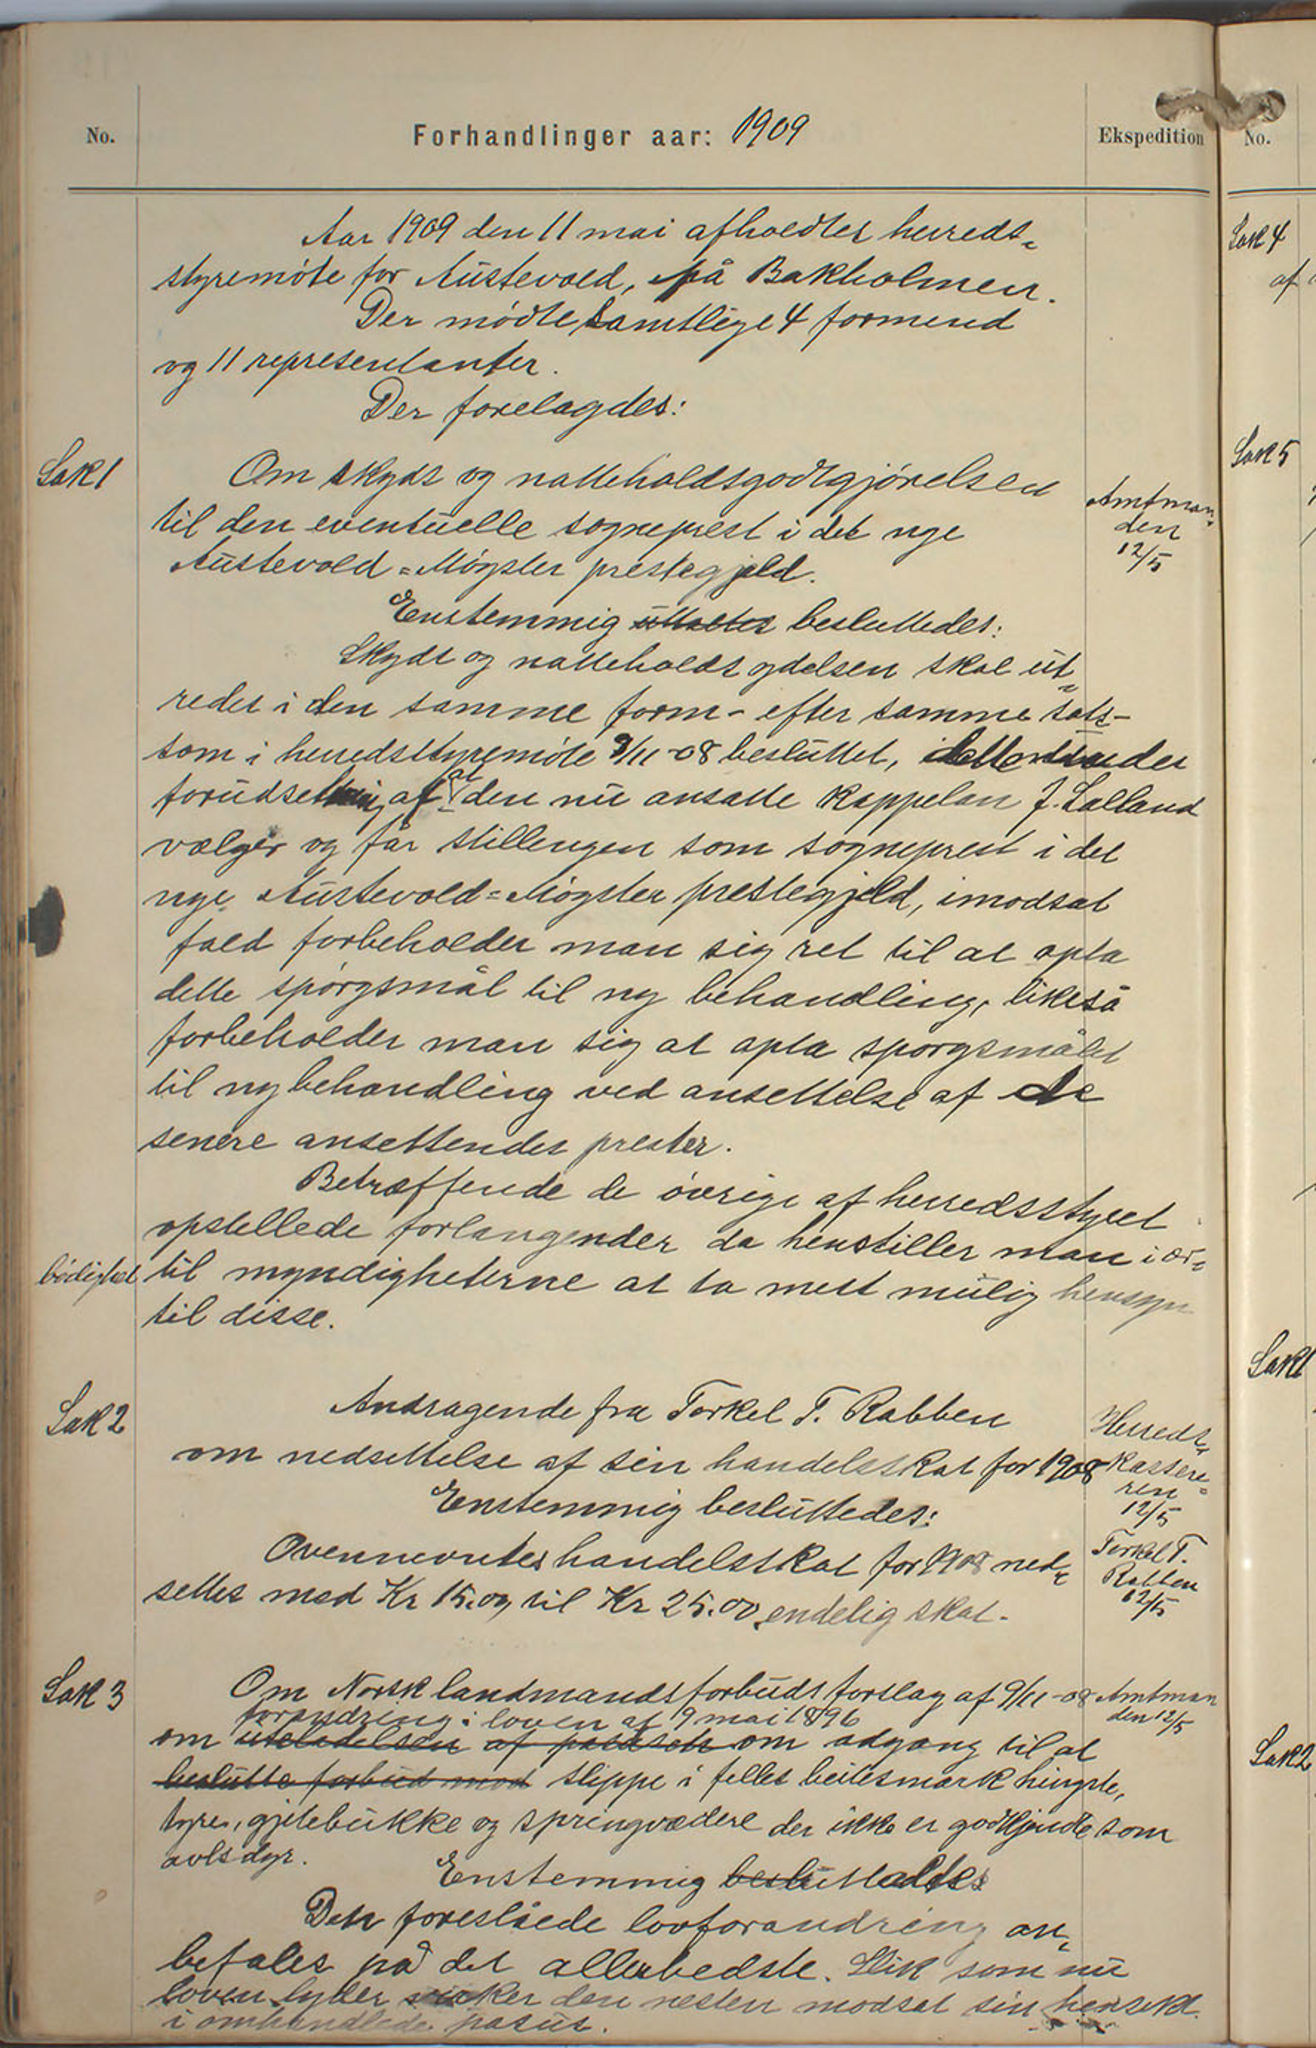 No.
Forhandlinger aar: 1909
Ekspedition
No.
Aar 1909 den 11 mai afholdtes herreds-
styremøte for Austevold, på Bakholmen.
Der mødte samtlige 4 formend
og 11 representanter.
Der forelagdes:
Sak 1
Om skyds og natteholdsgodtgjørelsen
til den eventuelle sogneprest i det nye
Austevold=Møgster prestegjeld.
Amtman-
den
12/5
Enstemmig uttaltes besluttedes:
Skyds og natteholdsydelsen skal ut-
redes i den samme form - efter samme sats -
som i herredsstyremøte 9/11-08 besluttet, dette under
forudsetning af at den nu ansatte kappelan J. Salland
vælger og får stillingen som sogneprest i det
nye Austevold=Møgster prestegjeld, imodsat
fald forbeholder man sig ret til at opta
dette spørgsmål til ny behandling, likeså
forbeholder man sig at opta spørgsmålet
til ny behandling ved ansettelse af de
senere ansettendes prester.
Betræffende de øvrige af herredsstyret
opstellede forlangender da henstiller man i ær-
bødighet til myndigheterne at ta mest mulig hensyn
til disse.
Sak 2
Andragende fra Torkel T. Rabben
om nedsettelse af sin handelsskat for 1908
Enstemmig besluttedes:
Ovennevntes handelsskat for 1908 ned-
settes med Kr 15.00 til Kr 25.00 endelig skat.
Herreds-
kassere-
ren
12/5
Torkel T.
Rabben
12/5
Sak 3
Om Norsk landmandsforbunds forslag af 9/11-08
forandring i loven af 9 mai 1896
om utelatelsen af passen om adgang til at
beslutte forbud mod slippe i felles beitesmark hingste,
tyre, gjetebukke og springvædere der ikke er godkjendte som
avlsdyr.
Amtman
den 12/5
Enstemmig
Den foreslåede lovforandring an-
befales på det allerbedste. Slik som nu
loven lyder virker den nesten modsat sin hensikt
i omhandlede passus.
Sak 4
af
Sak 5
Sak 1
Sak 2